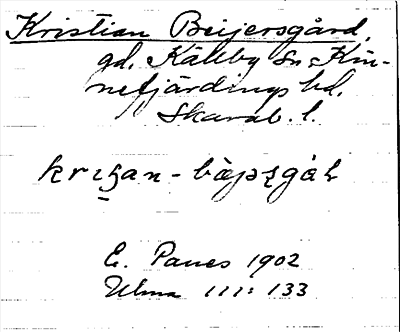 Kristian Beijersgård,
gd. Källby sn. Kin-
nefjärdings hd.
Skarab. l.
E. Panes 1902
Ulma 111: 133